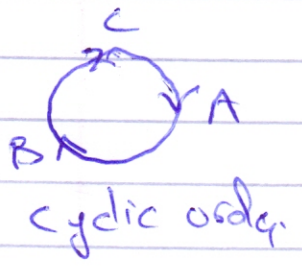 C
A
B
cyclic order.